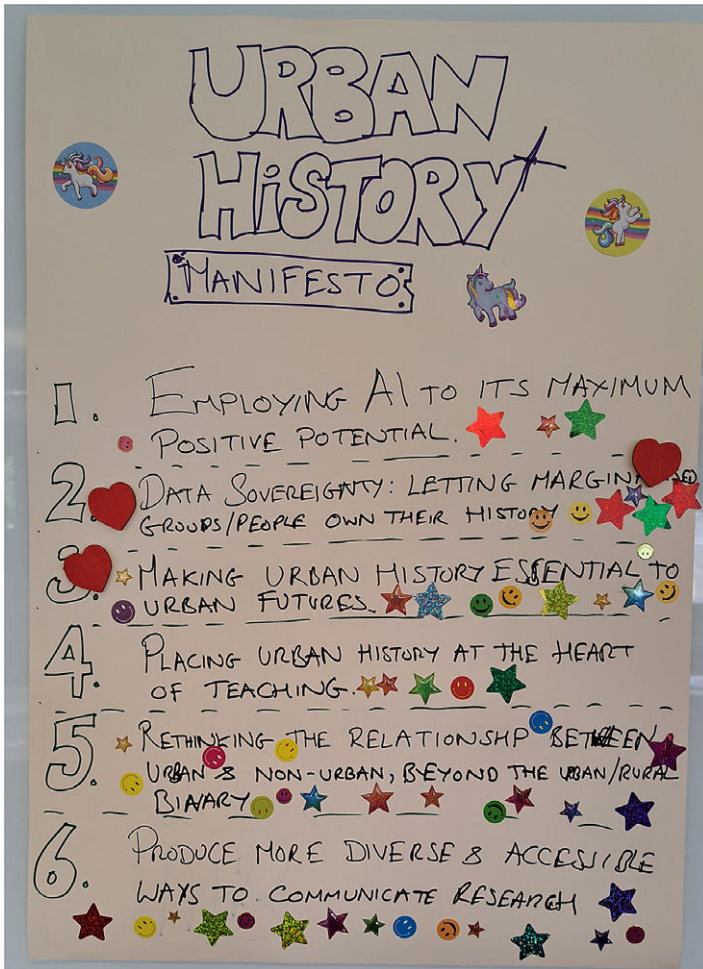 URBAN
HiSTORY
MANIFESTO
1. EMPLOYING AI TO ITS MAXIMUM
POSITIVE POTENTIAL.
2. DATA SOVEREIGNTY: LETTING
GROUPS/PEOPLE OWN THEIR HISTORY
3. MAKING URBAN HISTORY ESSENTIAL TO
URBAN FUTURES.
4. PLACING URBAN HISTORY AT THE HEART
OF TEACHING.
5. RETHINKING THE RELATIONSHP BETWEEN
URBAN & NON-URBAN, BEYOND THE URBAN/RURAL
BINARY
6. PRODUCE MORE DIVERSE & ACCESSIBLE
WAYS TO COMMUNICATE RESEARCH